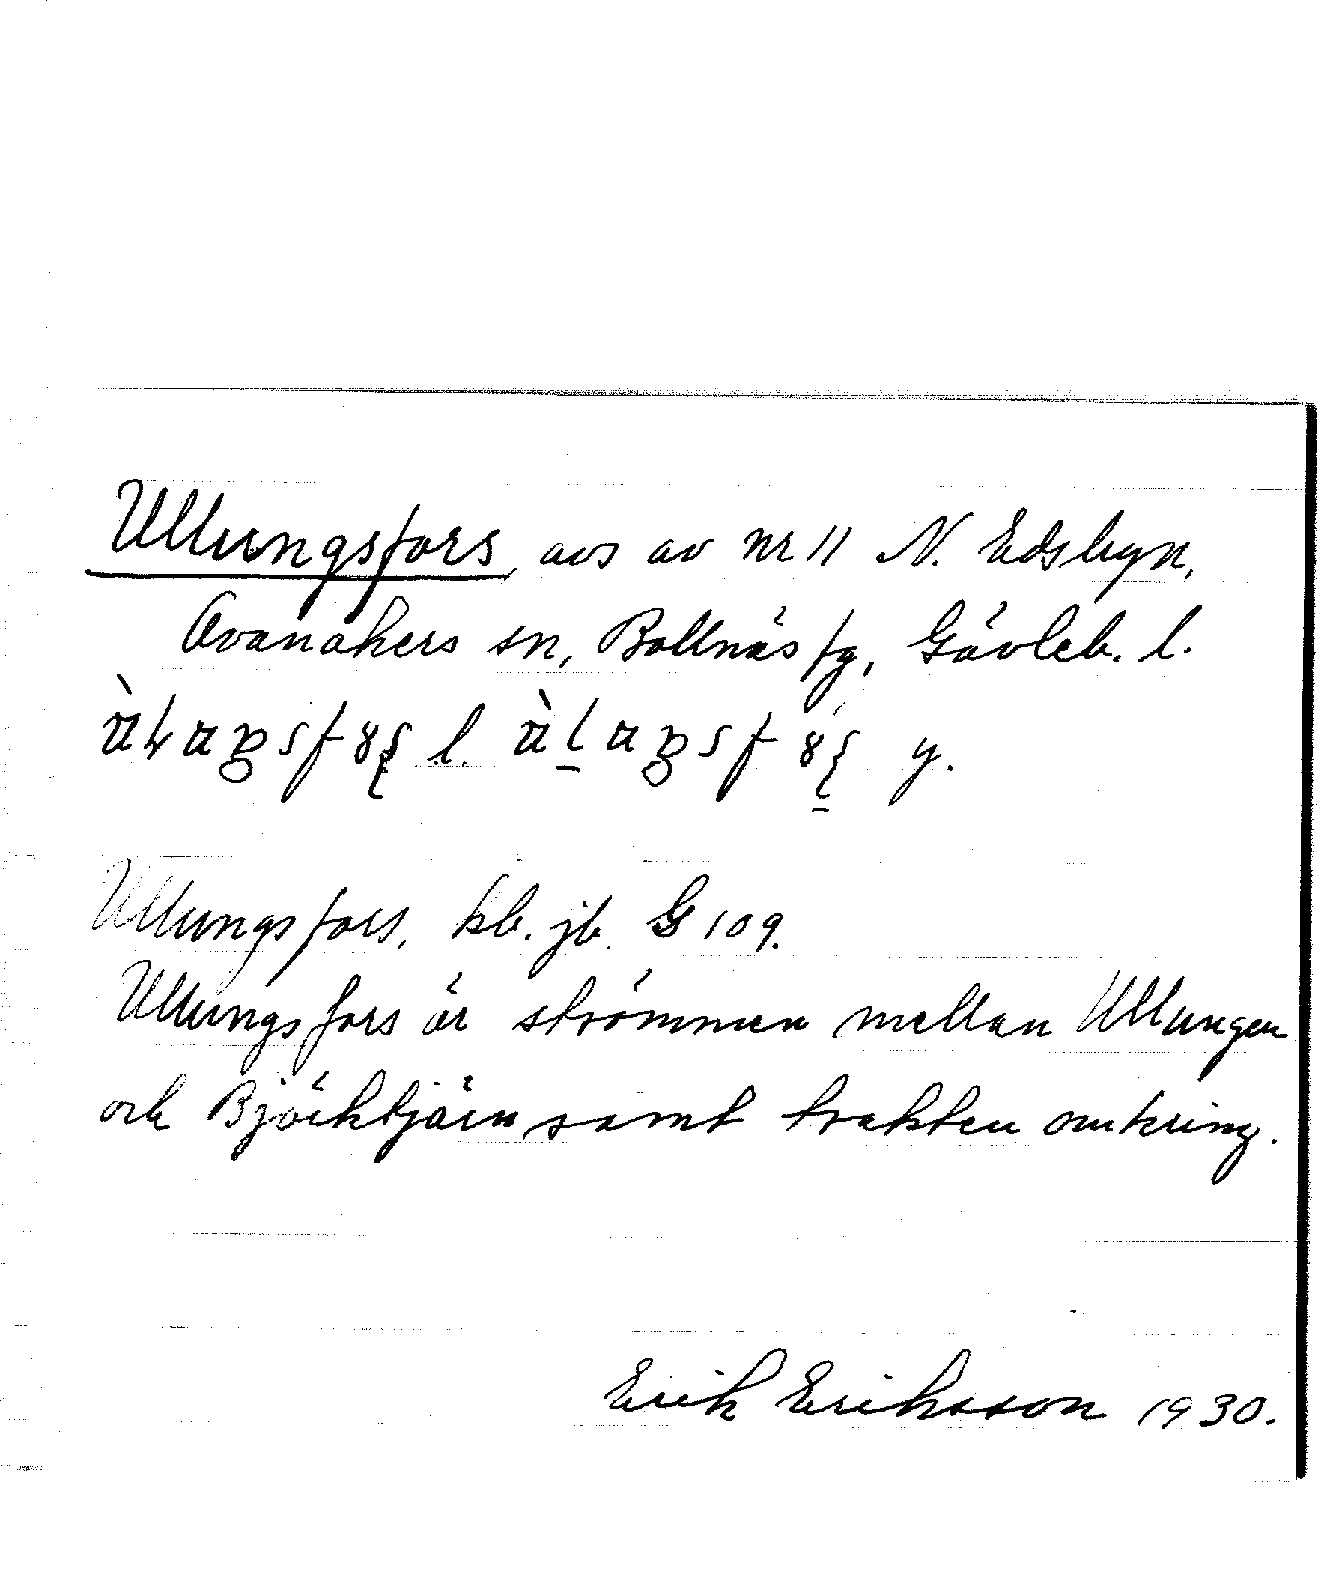 Ullungsfors, avs av nr 11 N. Edsbyn,
Ovanåkers sn, Bollnäs fg, Gävleb. l.
l. y.
Ullungsfors, kb. jb. G 109.
Ullungsfors är strömmen mellan Ullungen
och Björktjärn samt trakten omkring.
Erik Eriksson 1930.